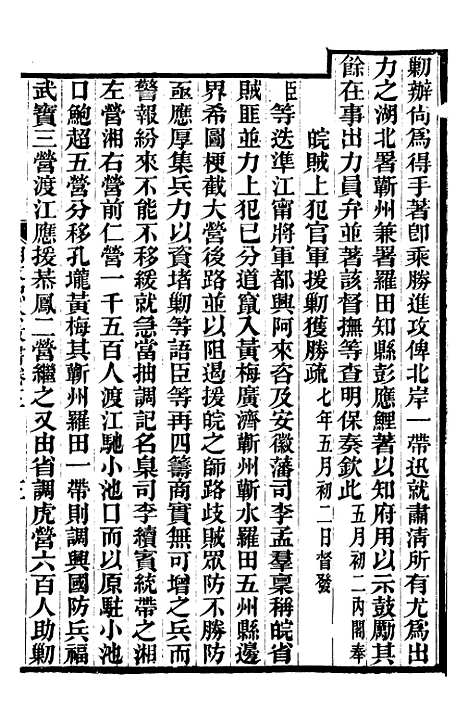 勦辦尙爲得手著卽乘勝進攻俾北岸一帶迅就肅淸所有尤爲出
力之湖北署蘄州兼署羅田知縣彭應鯉著以知府用以示鼓勵其
餘在事出力員弁並著該督撫等查明保奏欽此五月初二內閣奉
皖賊上犯官軍援勦獲勝疏七年五月初二日督發
臣等迭準江甯將軍都興阿來咨及安徽藩司李孟羣稟稱皖省
賊匪並力上犯已分道竄入黃梅廣濟蘄州蘄水羅田五州縣邊
界希圖梗截大營後路並以阻遏援皖之師路歧賊眾防不勝防
亟應厚集兵力以資堵勦等語臣等再四籌商實無可增之兵而
警報紛來不能不移緩就急當抽調記名臬司李續賓統帶之湘
左營湘右營前仁營一千五百人渡江馳小池口而以原駐小池
口鮑超五營分移孔壠黃梅其蘄州羅田一帶則調興國防兵福
武寶三營渡江應援恭鳳二營繼之又由省調虎營六百人助勦